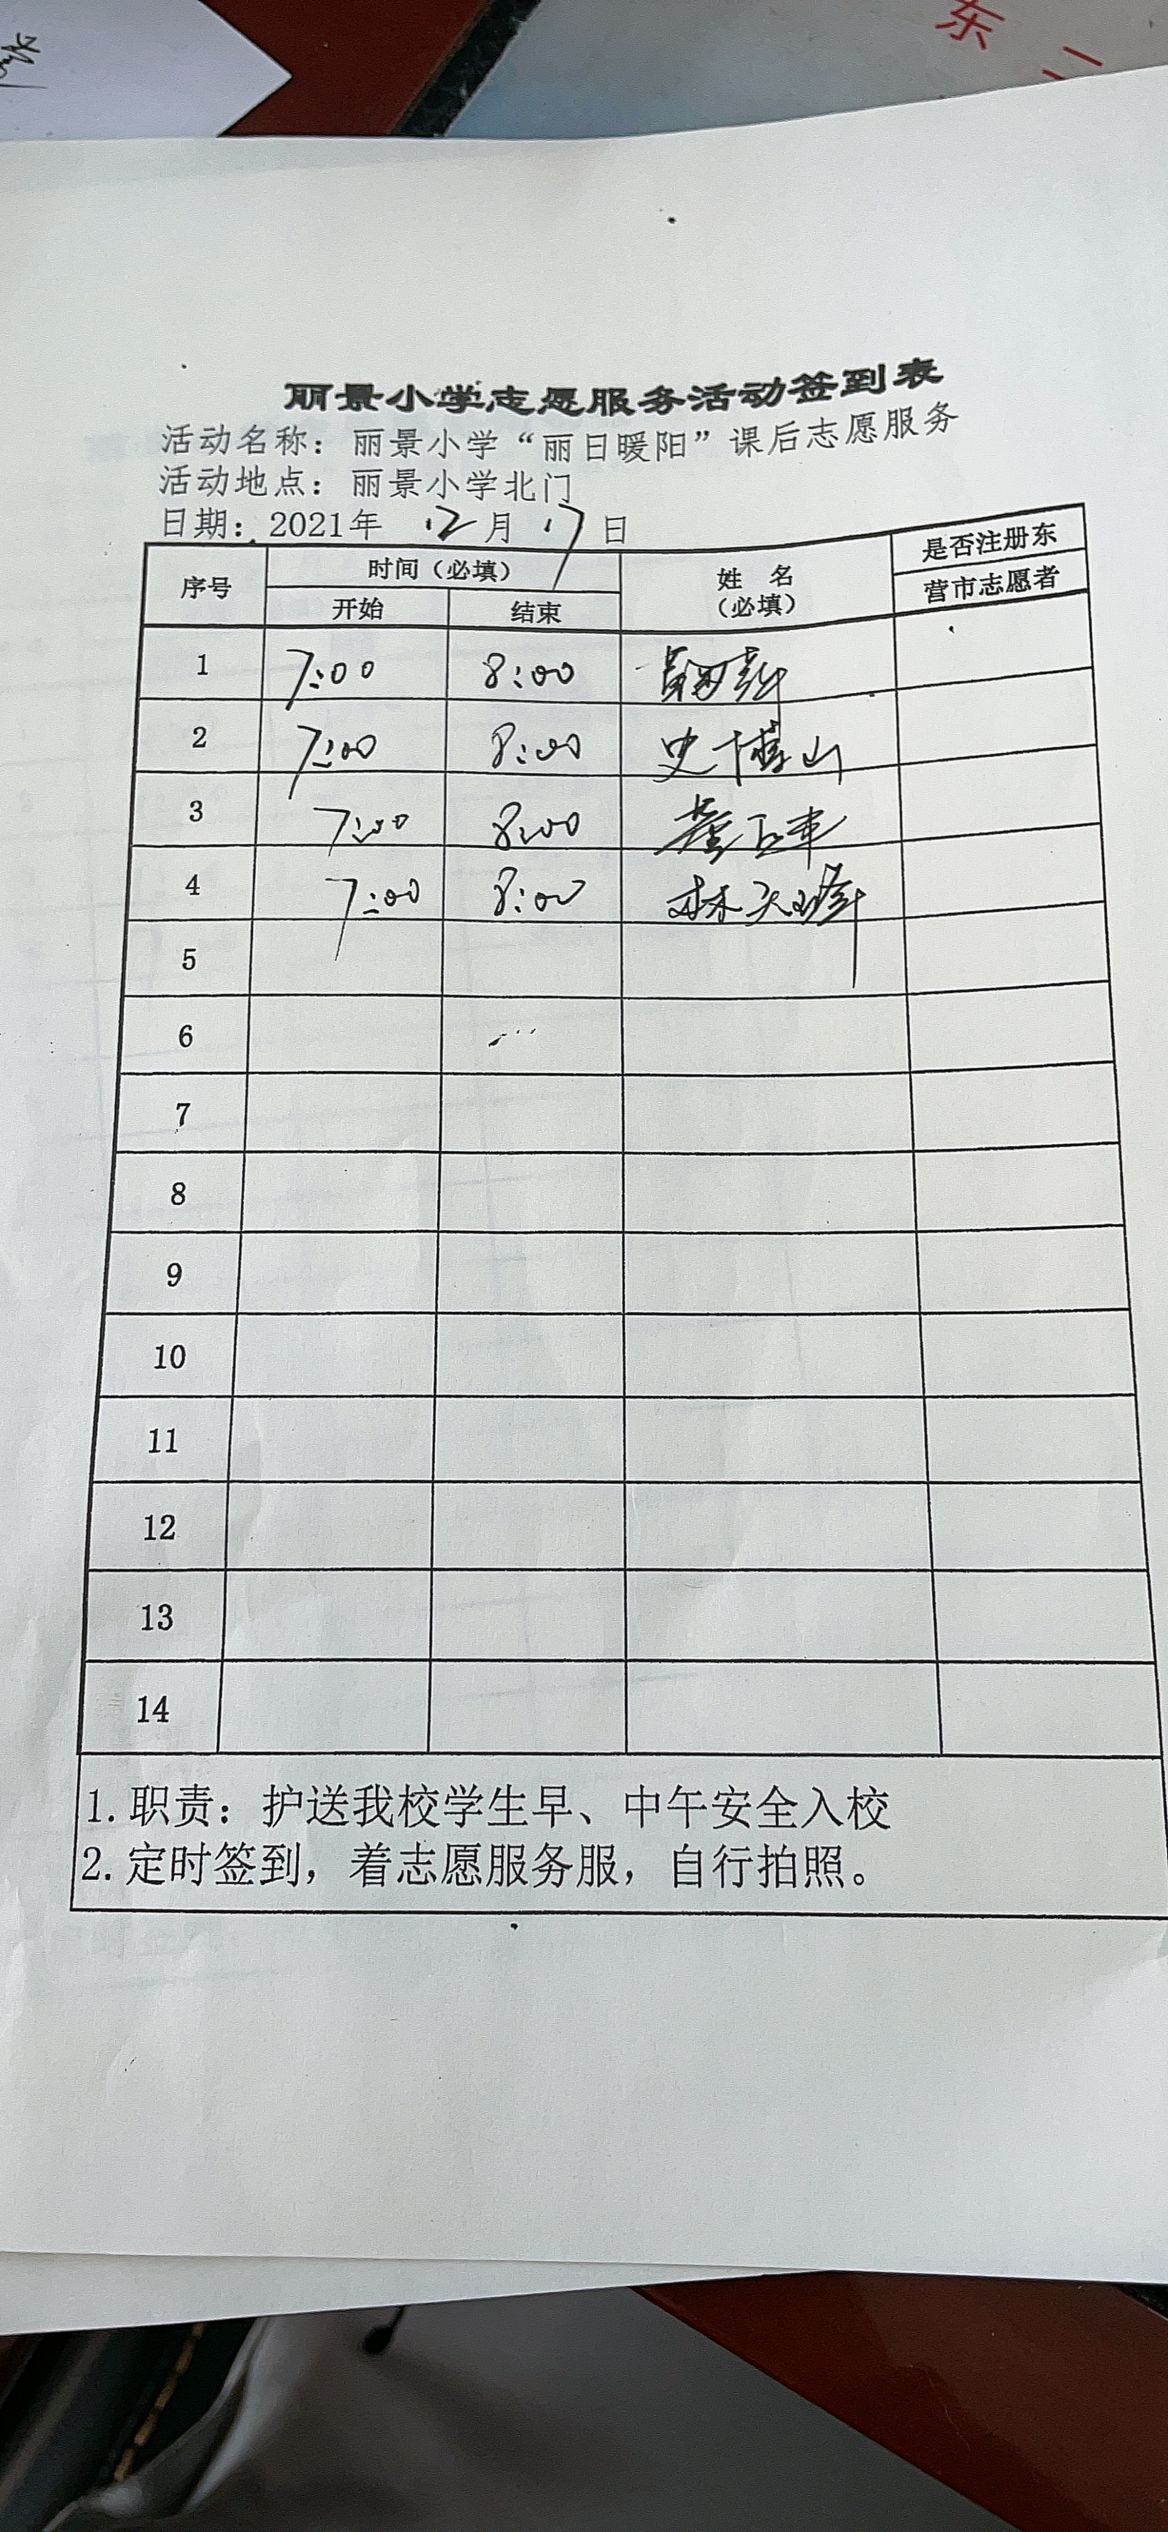 东二
丽景小学志愿服务活动签到表
活动名称：丽景小学“丽日暖阳”课后志愿服务
活动地点：丽景小学北门
日期：2021年 12月 17日
序号 时间（必填） 姓 名（必填） 是否注册东营市志愿者
开始 结束
1 7:00 8:00
2 7:00 8:00 史博山
3 7:00 8:00 董
4 7:00 8:00 林天峰
5
6
7
8
9
10
11
12
13
14
1.职责：护送我校学生早、中午安全入校
2.定时签到，着志愿服务服，自行拍照。